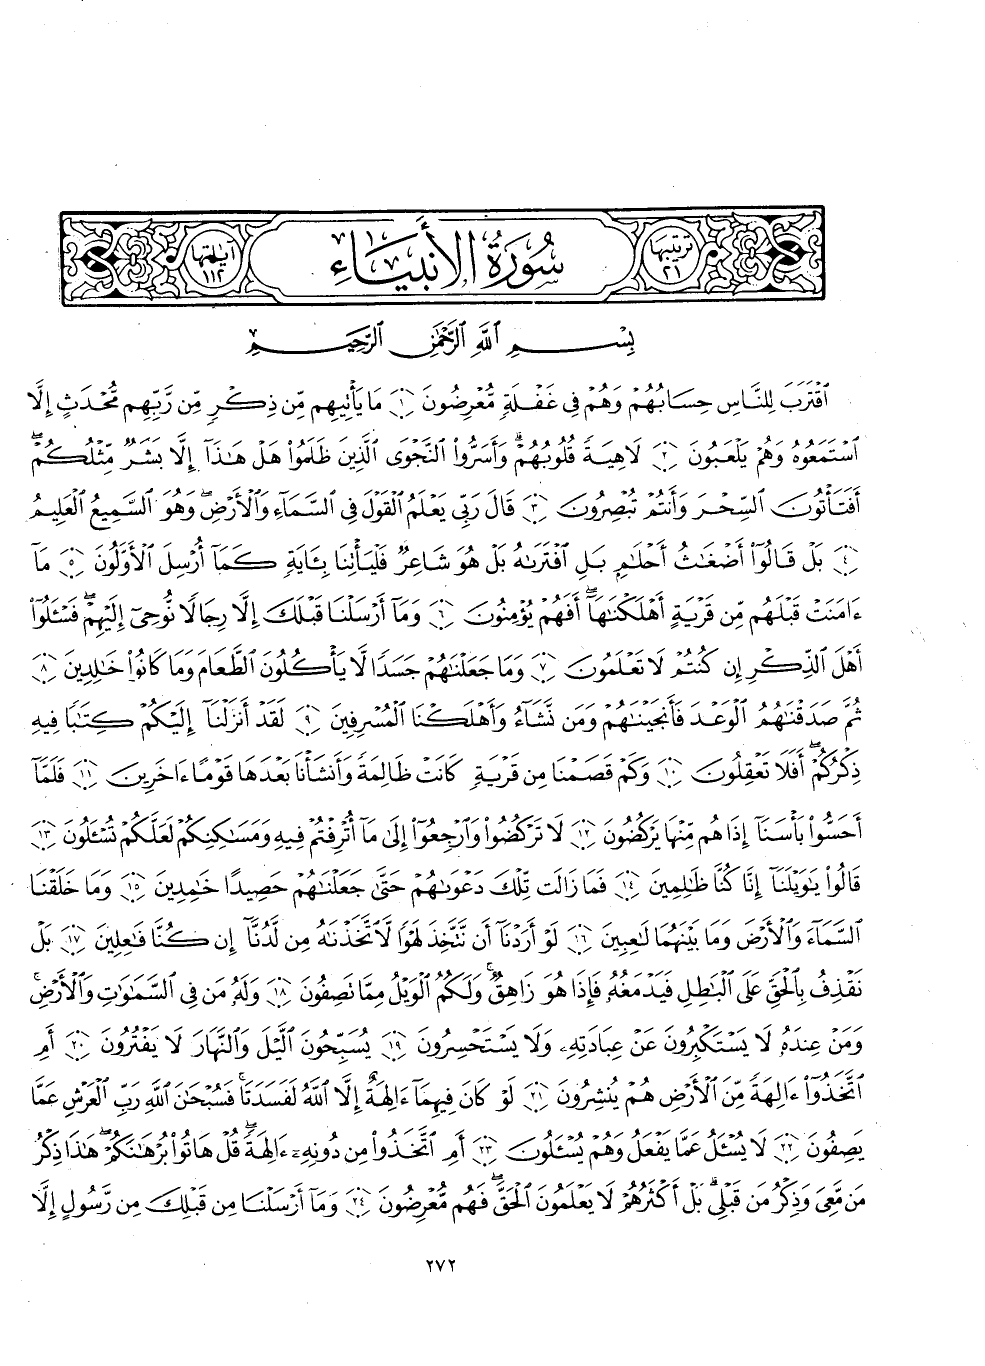 ترتيبها ٢١
سُورَةُ الأَنبِيَاءِ
آياتها ١١٢
بِسْمِ ٱللَّهِ ٱلرَّحْمَٰنِ ٱلرَّحِيمِ
ٱقْتَرَبَ لِلنَّاسِ حِسَابُهُمْ وَهُمْ فِى غَفْلَةٍ مُّعْرِضُونَ ﴿١﴾ مَا يَأْتِيهِم مِّن ذِكْرٍ مِّن رَّبِّهِم مُّحْدَثٍ إِلَّا
ٱسْتَمَعُوهُ وَهُمْ يَلْعَبُونَ ﴿٢﴾ لَاهِيَةً قُلُوبُهُمْ ۗ وَأَسَرُّوا۟ ٱلنَّجْوَى ٱلَّذِينَ ظَلَمُوا۟ هَلْ هَـٰذَآ إِلَّا بَشَرٌ مِّثْلُكُمْ ۖ
أَفَتَأْتُونَ ٱلسِّحْرَ وَأَنتُمْ تُبْصِرُونَ ﴿٣﴾ قَالَ رَبِّى يَعْلَمُ ٱلْقَوْلَ فِى ٱلسَّمَآءِ وَٱلْأَرْضِ ۖ وَهُوَ ٱلسَّمِيعُ ٱلْعَلِيمُ
﴿٤﴾ بَلْ قَالُوٓا۟ أَضْغَـٰثُ أَحْلَـٰمٍۭ بَلِ ٱفْتَرَىٰهُ بَلْ هُوَ شَاعِرٌ فَلْيَأْتِنَا بِـَٔايَةٍ كَمَآ أُرْسِلَ ٱلْأَوَّلُونَ ﴿٥﴾ مَآ
ءَامَنَتْ قَبْلَهُم مِّن قَرْيَةٍ أَهْلَكْنَـٰهَآ ۖ أَفَهُمْ يُؤْمِنُونَ ﴿٦﴾ وَمَآ أَرْسَلْنَا قَبْلَكَ إِلَّا رِجَالًا نُّوحِىٓ إِلَيْهِمْ ۖ فَسْـَٔلُوٓا۟
أَهْلَ ٱلذِّكْرِ إِن كُنتُمْ لَا تَعْلَمُونَ ﴿٧﴾ وَمَا جَعَلْنَـٰهُمْ جَسَدًا لَّا يَأْكُلُونَ ٱلطَّعَامَ وَمَا كَانُوا۟ خَـٰلِدِينَ ﴿٨﴾
ثُمَّ صَدَقْنَـٰهُمُ ٱلْوَعْدَ فَأَنجَيْنَـٰهُمْ وَمَن نَّشَآءُ وَأَهْلَكْنَا ٱلْمُسْرِفِينَ ﴿٩﴾ لَقَدْ أَنزَلْنَآ إِلَيْكُمْ كِتَـٰبًا فِيهِ
ذِكْرُكُمْ ۖ أَفَلَا تَعْقِلُونَ ﴿١٠﴾ وَكَمْ قَصَمْنَا مِن قَرْيَةٍ كَانَتْ ظَالِمَةً وَأَنشَأْنَا بَعْدَهَا قَوْمًا ءَاخَرِينَ ﴿١١﴾ فَلَمَّآ
أَحَسُّوا۟ بَأْسَنَآ إِذَا هُم مِّنْهَا يَرْكُضُونَ ﴿١٢﴾ لَا تَرْكُضُوا۟ وَٱرْجِعُوٓا۟ إِلَىٰ مَآ أُتْرِفْتُمْ فِيهِ وَمَسَـٰكِنِكُمْ لَعَلَّكُمْ تُسْـَٔلُونَ ﴿١٣﴾
قَالُوا۟ يَـٰوَيْلَنَآ إِنَّا كُنَّا ظَـٰلِمِينَ ﴿١٤﴾ فَمَا زَالَت تِّلْكَ دَعْوَىٰهُمْ حَتَّىٰ جَعَلْنَـٰهُمْ حَصِيدًا خَـٰمِدِينَ ﴿١٥﴾ وَمَا خَلَقْنَا
ٱلسَّمَآءَ وَٱلْأَرْضَ وَمَا بَيْنَهُمَا لَـٰعِبِينَ ﴿١٦﴾ لَوْ أَرَدْنَآ أَن نَّتَّخِذَ لَهْوًا لَّٱتَّخَذْنَـٰهُ مِن لَّدُنَّآ إِن كُنَّا فَـٰعِلِينَ ﴿١٧﴾ بَلْ
نَقْذِفُ بِٱلْحَقِّ عَلَى ٱلْبَـٰطِلِ فَيَدْمَغُهُۥ فَإِذَا هُوَ زَاهِقٌ ۚ وَلَكُمُ ٱلْوَيْلُ مِمَّا تَصِفُونَ ﴿١٨﴾ وَلَهُۥ مَن فِى ٱلسَّمَـٰوَٰتِ وَٱلْأَرْضِ ۚ
وَمَنْ عِندَهُۥ لَا يَسْتَكْبِرُونَ عَنْ عِبَادَتِهِۦ وَلَا يَسْتَحْسِرُونَ ﴿١٩﴾ يُسَبِّحُونَ ٱلَّيْلَ وَٱلنَّهَارَ لَا يَفْتُرُونَ ﴿٢٠﴾ أَمِ
ٱتَّخَذُوٓا۟ ءَالِهَةً مِّنَ ٱلْأَرْضِ هُمْ يُنشِرُونَ ﴿٢١﴾ لَوْ كَانَ فِيهِمَآ ءَالِهَةٌ إِلَّا ٱللَّهُ لَفَسَدَتَا ۚ فَسُبْحَـٰنَ ٱللَّهِ رَبِّ ٱلْعَرْشِ عَمَّا
يَصِفُونَ ﴿٢٢﴾ لَا يُسْـَٔلُ عَمَّا يَفْعَلُ وَهُمْ يُسْـَٔلُونَ ﴿٢٣﴾ أَمِ ٱتَّخَذُوا۟ مِن دُونِهِۦٓ ءَالِهَةً ۖ قُلْ هَاتُوا۟ بُرْهَـٰنَكُمْ ۖ هَـٰذَا ذِكْرُ
مَن مَّعِىَ وَذِكْرُ مَن قَبْلِى ۗ بَلْ أَكْثَرُهُمْ لَا يَعْلَمُونَ ٱلْحَقَّ ۖ فَهُم مُّعْرِضُونَ ﴿٢٤﴾ وَمَآ أَرْسَلْنَا مِن قَبْلِكَ مِن رَّسُولٍ إِلَّا
٢٧٢